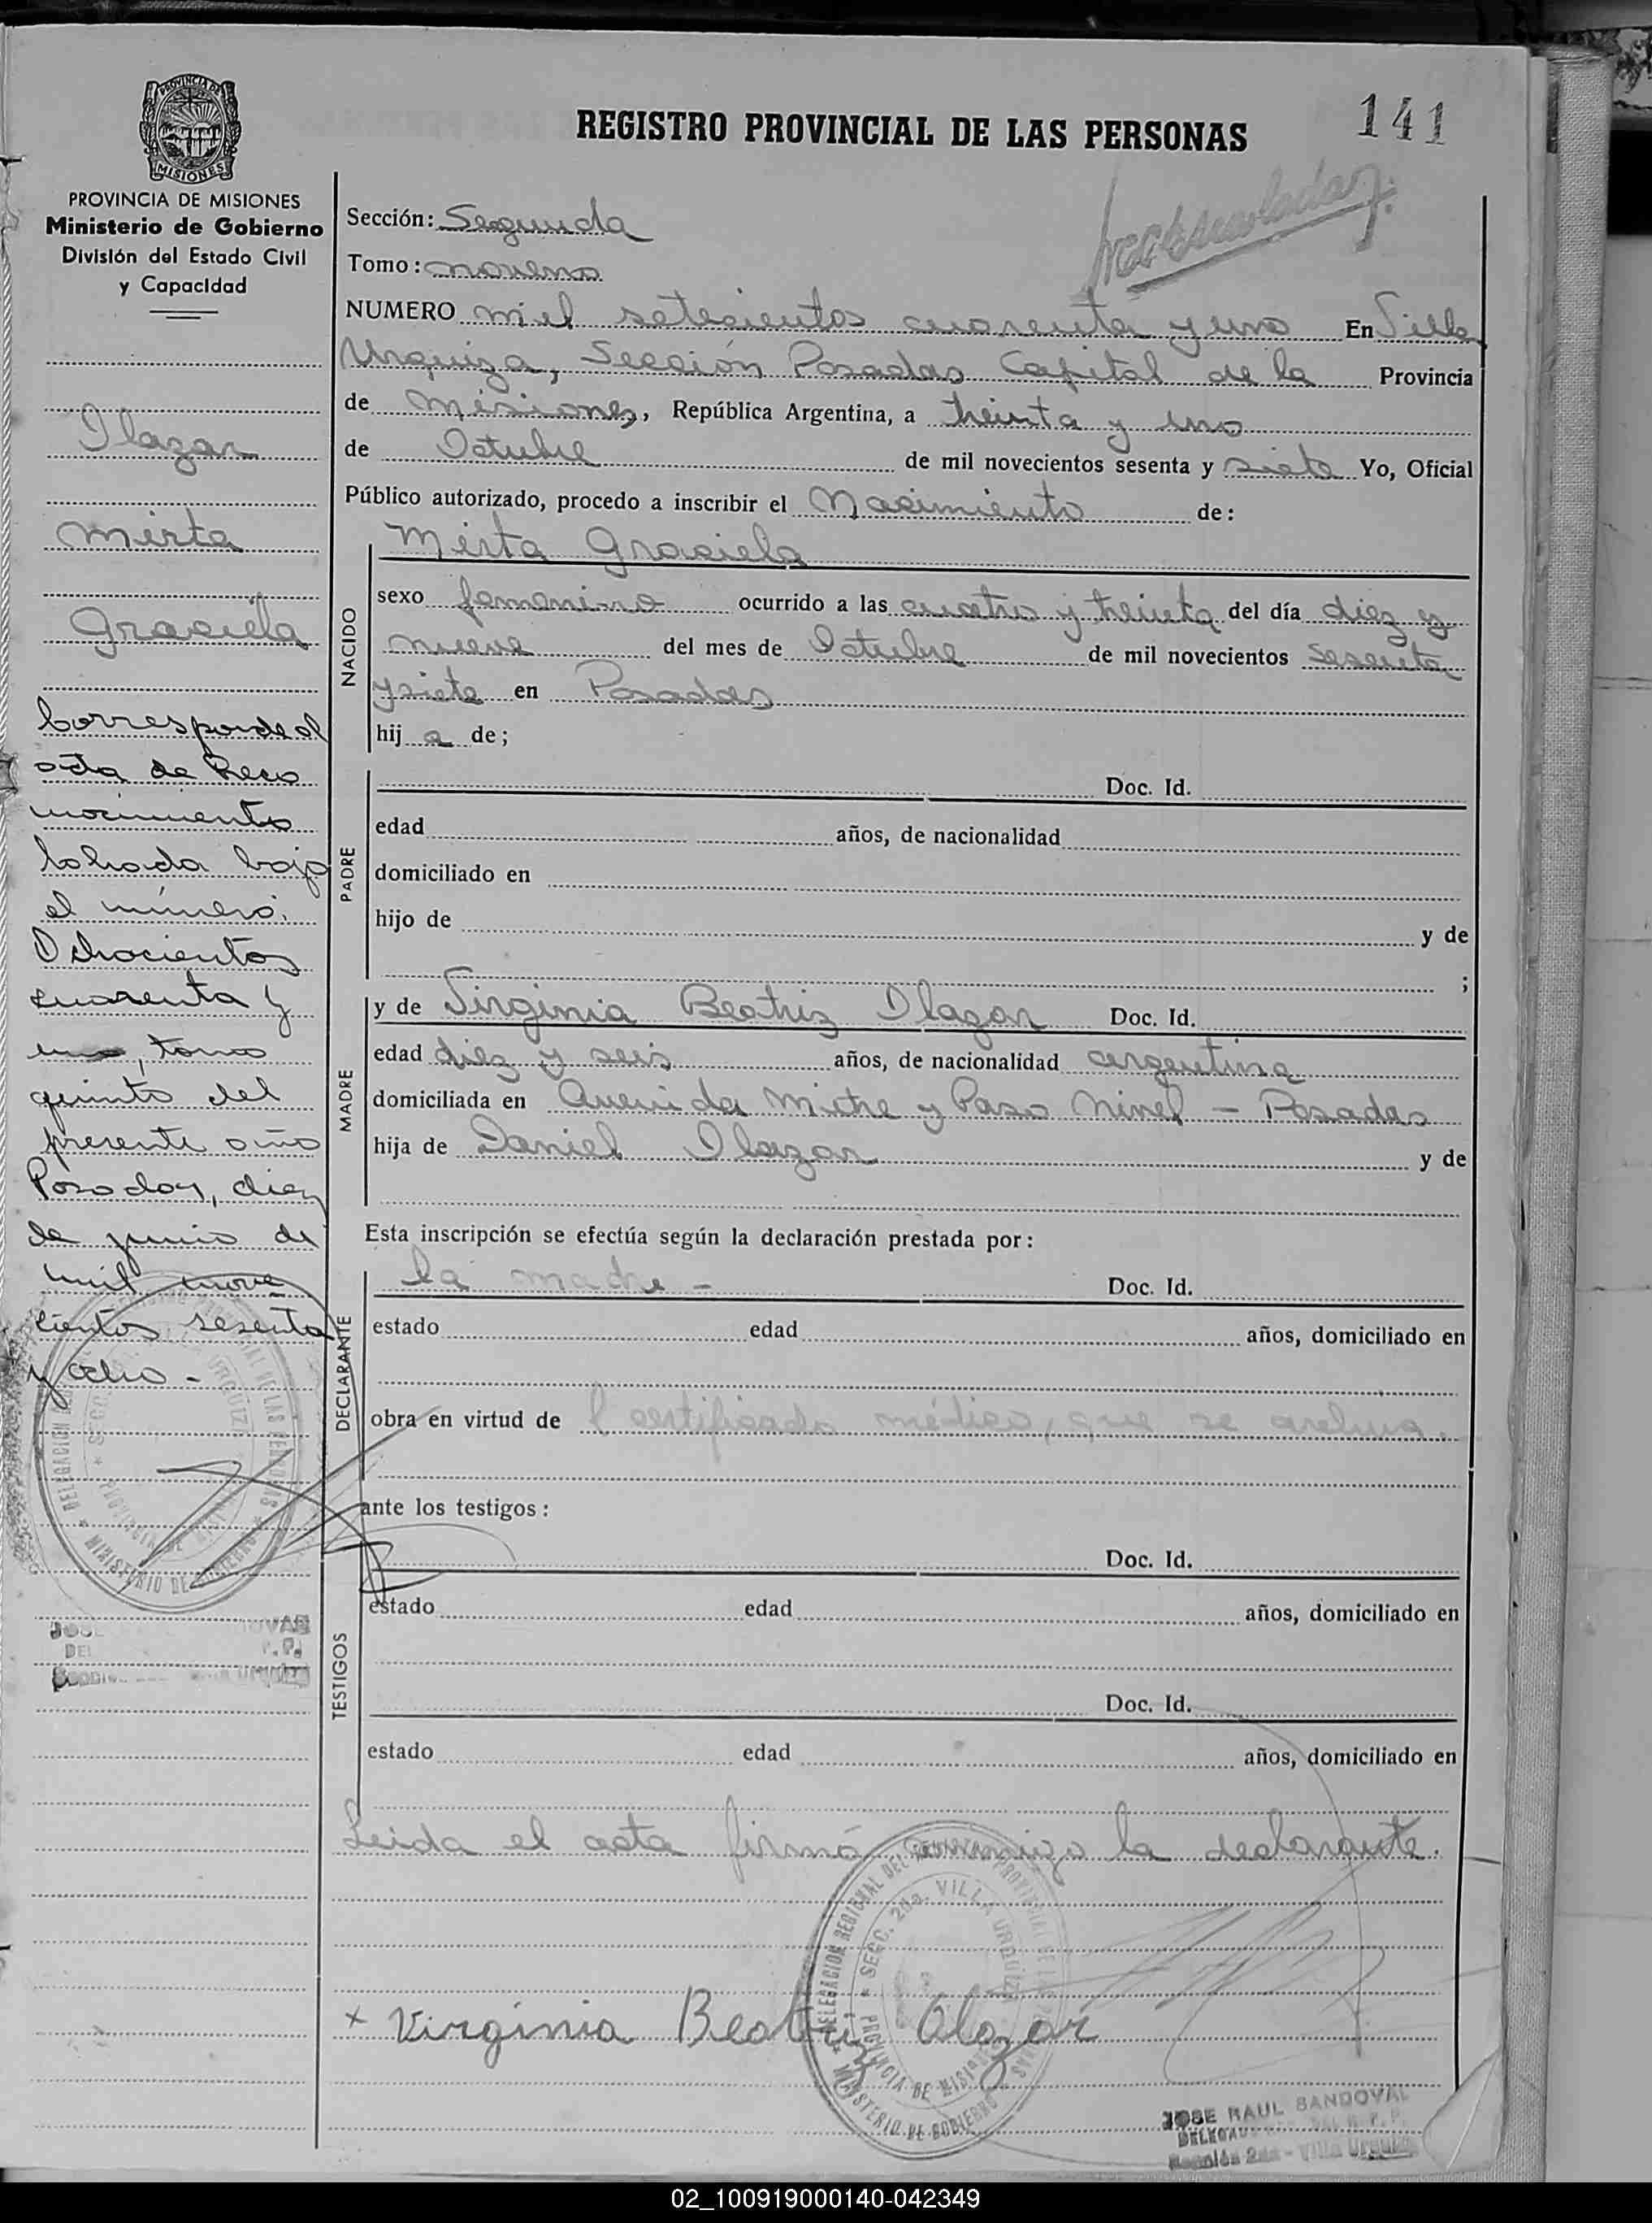 141
PROVINCIA DE
MISIONES
REGISTRO PROVINCIAL DE LAS PERSONAS
PROVINCIA DE MISIONES
Ministerio de Gobierno
División del Estado Civil
y Capacidad
Olazar
Mirta
Graciela
Corresponde al
acta de Reco
nocimiento
labrada bajo
el número
Ochocientos
cuarenta y
uno, tomo
quinto del
presente año
Posadas, diez
de junio de
mil nove
cientos sesenta
y ocho -
Sección: Segunda
Tomo: noveno
NUMERO mil setecientos cuarenta y uno En Villa
Urquiza, Sección Posadas Capital de la Provincia
de Misiones, República Argentina, a treinta y uno
de Octubre de mil novecientos sesenta y siete Yo, Oficial
Público autorizado, procedo a inscribir el Nacimiento de:
NACIDO
Mirta Graciela
sexo femenino ocurrido a las cuatro y treinta del día diez y
nueve del mes de Octubre de mil novecientos sesenta
y siete en Posadas
hij a de;
PADRE
Doc. Id.
edad años, de nacionalidad
domiciliado en
hijo de y de
;
MADRE
y de Virginia Beatriz Olazar Doc. Id.
edad diez y seis años, de nacionalidad argentina
domiciliada en Avenida Mitre y Paso Nivel - Posadas
hija de Daniel Olazar y de
Esta inscripción se efectúa según la declaración prestada por:
DECLARANTE
la madre - Doc. Id.
estado edad años, domiciliado en
obra en virtud de certificado médico, que se archiva.
ante los testigos:
TESTIGOS
Doc. Id.
estado edad años, domiciliado en
Doc. Id.
estado edad años, domiciliado en
Leida el acta firmó conmigo la declarante.
x Virginia Beatriz Olazar
DELEGACION REGIONAL DEL REGISTRO PROVINCIAL DE LAS PERSONAS
SECC. 2da. VILLA URQUIZA
PROVINCIA DE MISIONES
MINISTERIO DE GOBIERNO
JOSE RAUL SANDOVAL
DELEGADO DEL R. P. P.
Sección 2da - Villa Urquiza
02_100919000140-042349